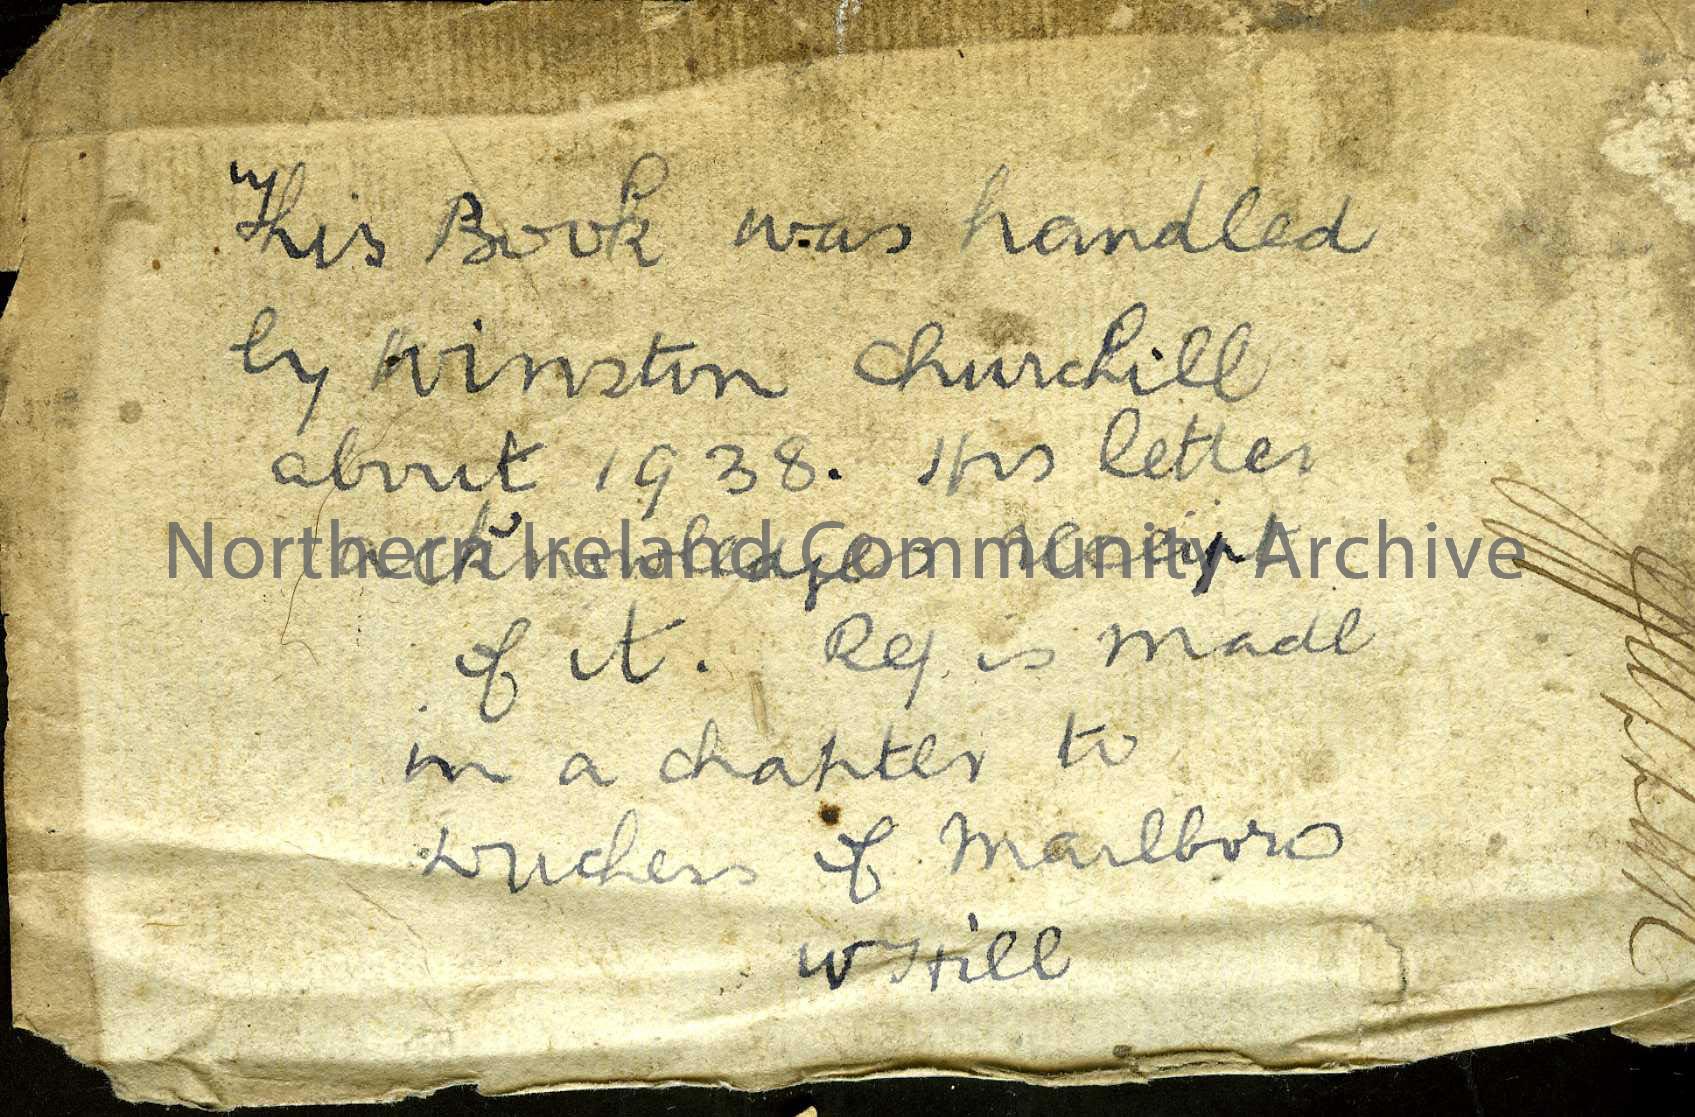 This Book was handled
by Winston Churchill
about 1938. His letter
acknowledges receipt
of it. Ref is made
in a chapter to
Duchess of Marlboro
W Hill
Northern Ireland Community Archive